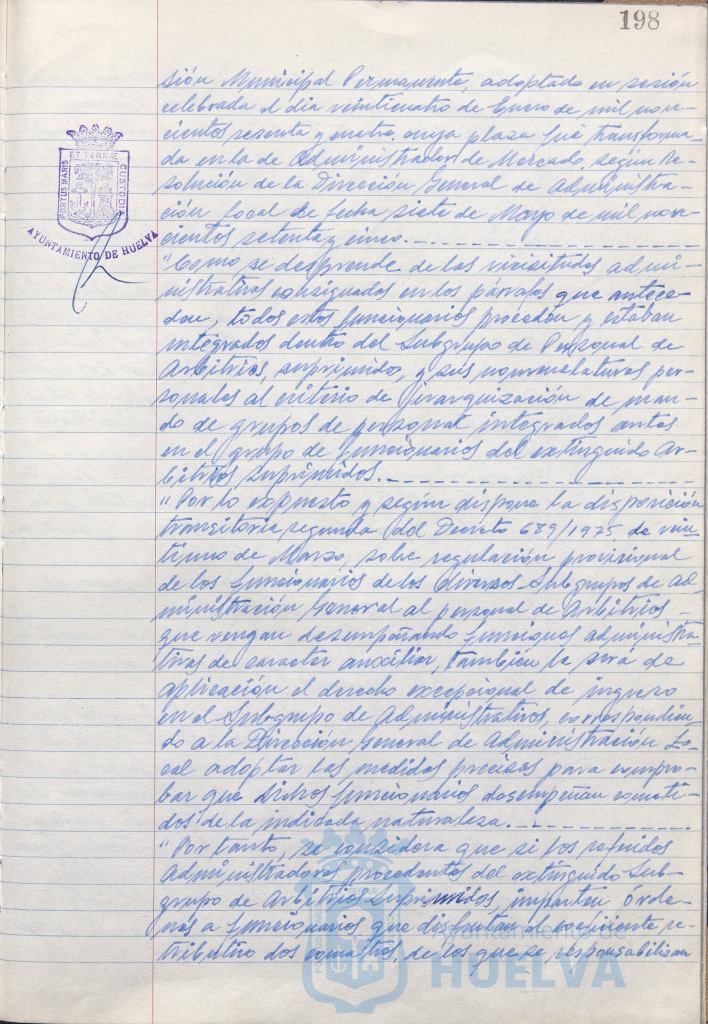 198
sión Municipal Permanente, adoptado en sesión
celebrada el día veinticuatro de Enero de mil nove-
cientos sesenta y cuatro, cuya plaza fue transforma-
da en la de Administrador de Mercado, según Re-
solución de la Dirección General de Administra-
ción Local de fecha siete de Mayo de mil nove-
cientos setenta y cinco.
PORTUS MARIS ET TERRAE CUSTODIA
AYUNTAMIENTO DE HUELVA
"Como se desprende de las vicisitudes admi-
nistrativas consignadas en los párrafos que antece-
den, todos estos funcionarios procedían y estaban
integrados dentro del Subgrupo de Personal de
Arbitrios, suprimido, y sus nomenclaturas per-
sonales al criterio de jerarquización de man-
do de grupos de personal integrados antes
en el grupo de funcionarios del extinguido Ar-
bitrios Suprimidos.
"Por lo expuesto y según dispone la disposición
transitoria segunda del Decreto 689/1975, de vein-
tiuno de Marzo, sobre regulación provisional
de los funcionarios de los diversos Subgrupos de Ad-
ministración General al personal de Arbitrios
que vengan desempeñando funciones administra-
tivas de caracter auxiliar, también le será de
aplicación el derecho excepcional de ingreso
en el Subgrupo de Administrativos, correspondien-
do a la Dirección General de Administración Lo-
cal adoptar las medidas precisas para compro-
bar que dichos funcionarios desempeñan cometi-
dos de la indicada naturaleza.
"Por tanto, se considera que si los referidos
Administradores procedentes del extinguido Sub-
grupo de Arbitrios Suprimidos, imparten órde-
nes a funcionarios que disfrutan el coeficiente re-
tributivo dos comatres, de los que se responsabilizan
HUELVA